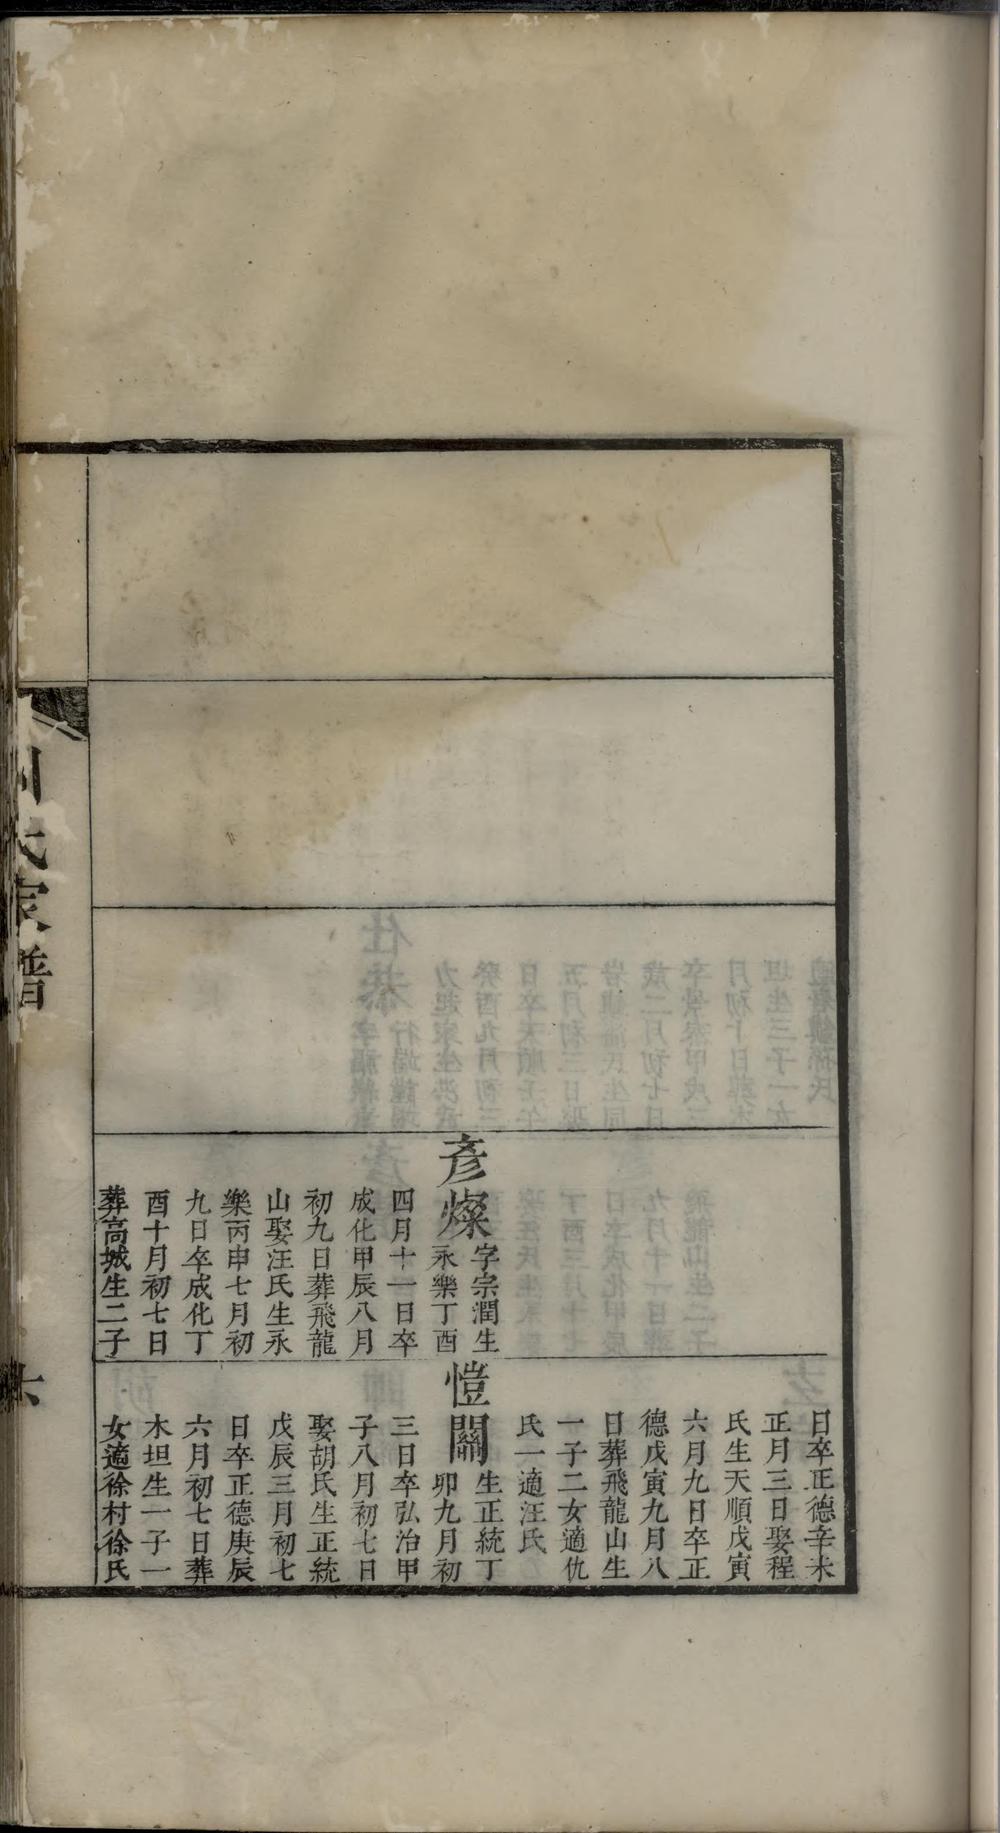 彥燦
字宗潤生
永樂丁酉
四月十一日卒
成化甲辰八月
初九日葬飛龍
山娶汪氏生永
樂丙申七月初
九日卒成化丁
酉十月初七日
葬高城生二子
日卒正德辛未
正月三日娶程
氏生天順戊寅
六月九日卒正
德戊寅九月八
日葬飛龍山生
一子二女適仇
氏一適汪氏
愷關
生正統丁
卯九月初
三日卒弘治甲
子八月初七日
娶胡氏生正統
戊辰三月初七
日卒正德庚辰
六月初七日葬
木坦生一子一
女適徐村徐氏
氏家譜
六